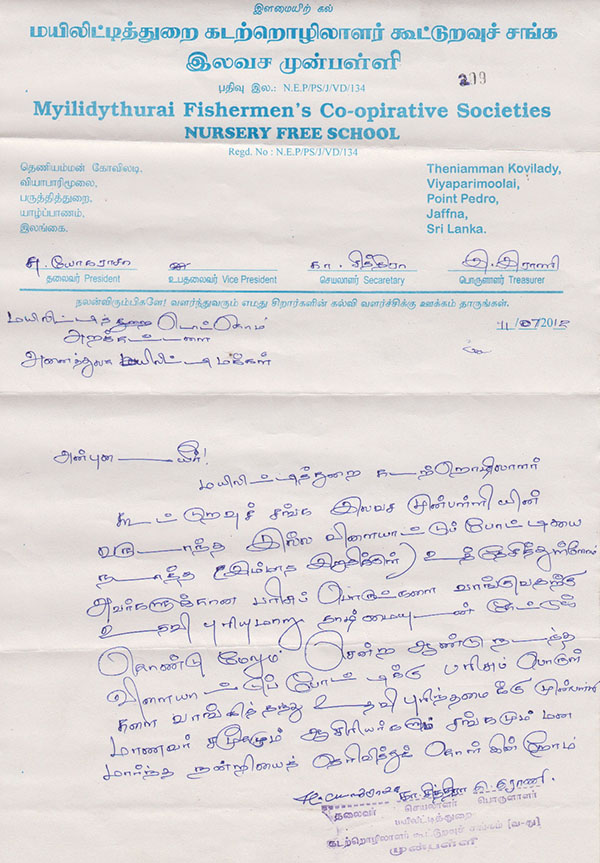 இளமையிற் கல்
மயிலிட்டித்துறை கடற்றொழிலாளர் கூட்டுறவுச் சங்க
இலவச முன்பள்ளி
பதிவு இல.: N.E.P/PS/J/VD/134
299
Myilidythurai Fishermen's Co-opirative Societies
NURSERY FREE SCHOOL
Regd. No : N.E.P/PS/J/VD/134
தெணியம்மன் கோவிலடி,
வியாபாரிமூலை,
பருத்தித்துறை,
யாழ்ப்பாணம்,
இலங்கை.
Theniamman Kovilady,
Viyaparimoolai,
Point Pedro,
Jaffna,
Sri Lanka.
சு. யோகராசா
கா. சித்திரா
இ. இராணி
தலைவர் President உபதலைவர் Vice President செயலாளர் Secaretary பொருளாளர் Treasurer
நலன்விரும்பிகளே! வளர்ந்துவரும் எமது சிறார்களின் கல்வி வளர்ச்சிக்கு ஊக்கம் தாருங்கள்.
மயிலிட்டித்துறை டொட்கொம்
அறக்கட்டளை
அனைத்துலக மயிலிட்டி மக்கள்
11/07/201
அன்புடையீர்!
மயிலிட்டித்துறை கடற்றொழிலாளர்
கூட்டுறவுச் சங்க இலவச முன்பள்ளியின்
வருடாந்த இல்ல விளையாட்டுப் போட்டியை
நடாத்த (இம்மாத இறுதிக்குள்) உத்தேசித்துள்ளோம்
அவர்களுக்கான பரிசுப் பொருட்களை வாங்குவதற்கு
உதவி புரியுமாறு தாழ்மையுடன் கேட்டுக்
கொண்டு மேலும் சென்ற ஆண்டு நடந்த
விளையாட்டுப் போட்டிக்கு பரிசுப் பொருள்
களை வாங்கித்தந்து உதவி புரிந்தமைக்கு முன்பள்ளி
மாணவர் சமூகமும் ஆசிரியர்களும் சங்கமும் மன
மார்ந்த நன்றியைத் தெரிவித்துக் கொள்கின்றோம்
கா. சித்திரா இ. இராணி
தலைவர் செயலாளர் பொருளாளர்
மயிலிட்டித்துறை
கடற்றொழிலாளர் கூட்டுறவுச் சங்கம் [வ-து]
முன்பள்ளி